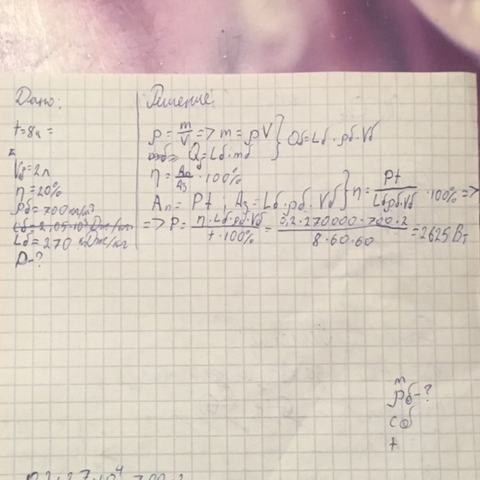 Дано:
t=8ч=
Vб=2л
η=20%
ρб=700кг/м³
Lб=270 кДж/кг
P-?
Решение:
ρ = m/V => m = ρV } Qб=Lб·ρб·Vб
Q=Lб·mб
η = Aп/Aз · 100%
Aп = Pt, Aз = Lб·ρб·Vб } η = Pt/Lбρб·Vб · 100% =>
=> P = η·Lб·ρб·Vб/t·100% = 0,2·270000·700·2/8·60·60 = 2625 Вт
m
ρб-?
сб
t